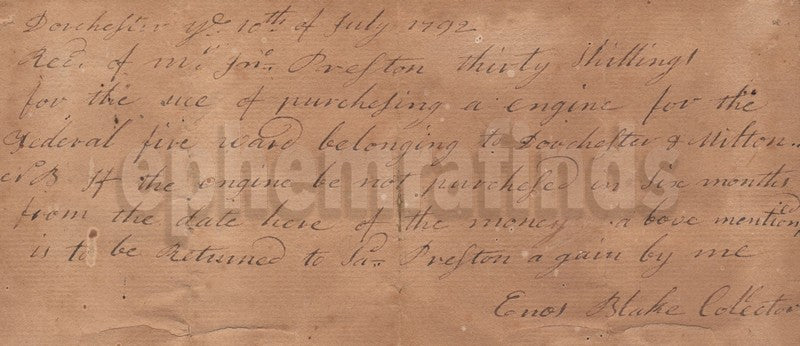 Dorchester ye 10th of July 1792
Recd of mr Jno Preston thirty Shillings
for the use of purchesing a engine for the
Federal fire ward belonging to Dorchester & Milton
NB If the engine be not purchesed in six months
from the date here of the money above mentiond
is to be Returned to sd Preston again by me
Enos Blake Colector
ephemrafinds